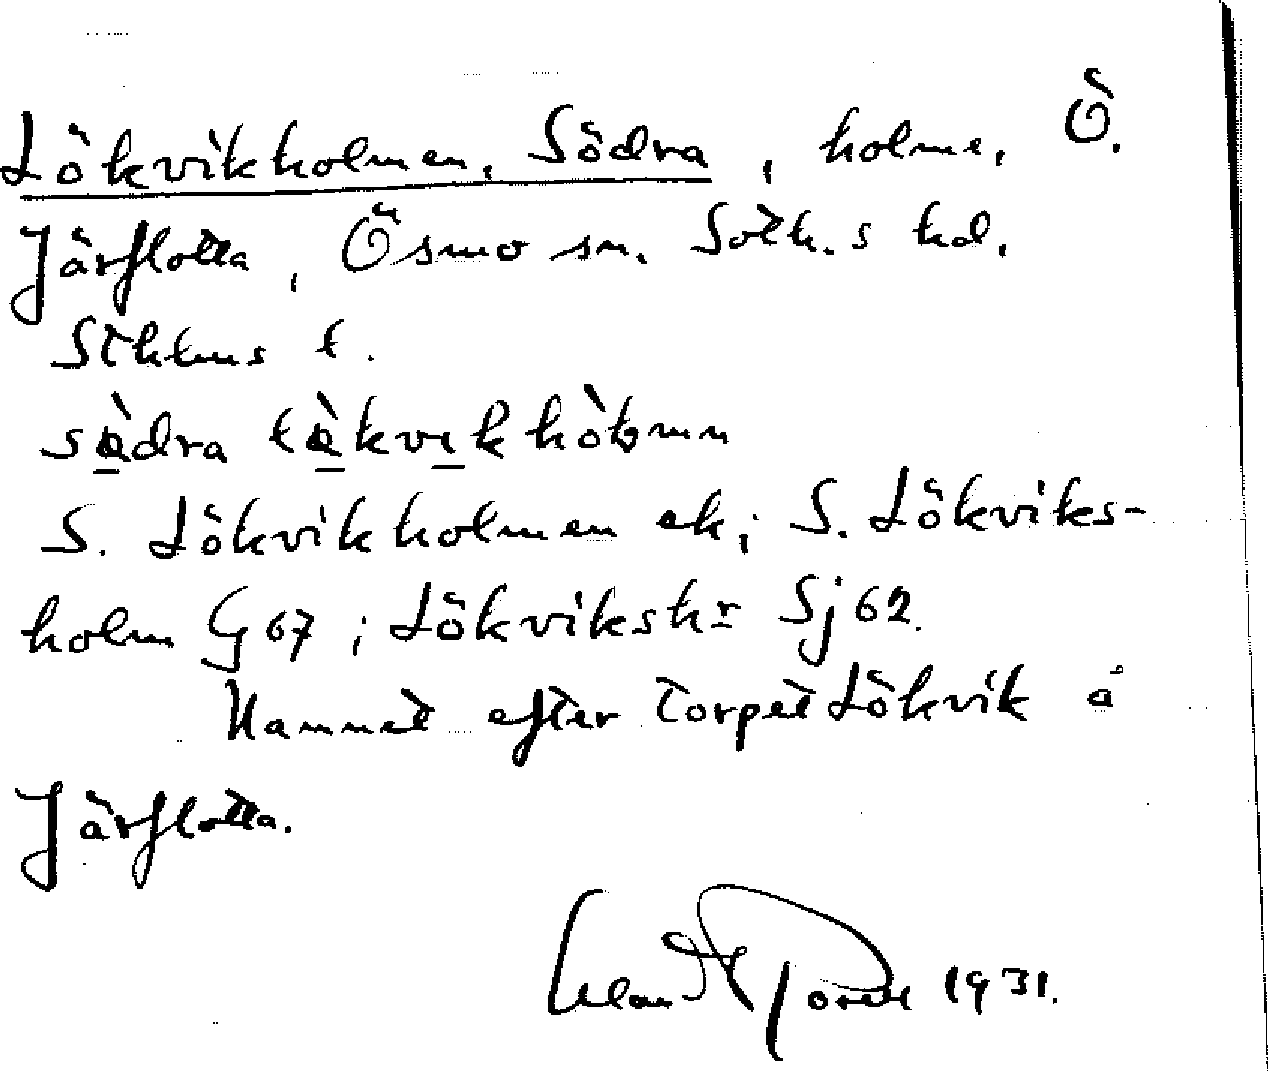 Lökvikholmen, Södra, holme, Ö.
Järflotta, Ösmo sn. Soth.s hd.
Sthlms l.
S. Lökvikholmen ek; S. Lökviks-
holm G 67; Lökvikskr Sj 62.
Namnet efter torpet Lökvik å
Järflotta.
1931.